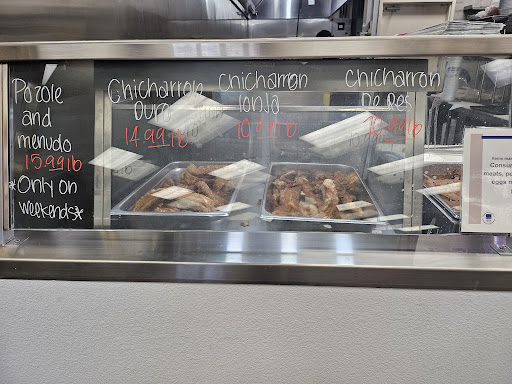 Pozole
and
menudo
15.99 lb
*Only on
weekends*
Chicharron
Duro
14.99 lb
Chicharron
lonja
10.99 lb
Chicharron
De Res
Consu
meats, po
eggs m